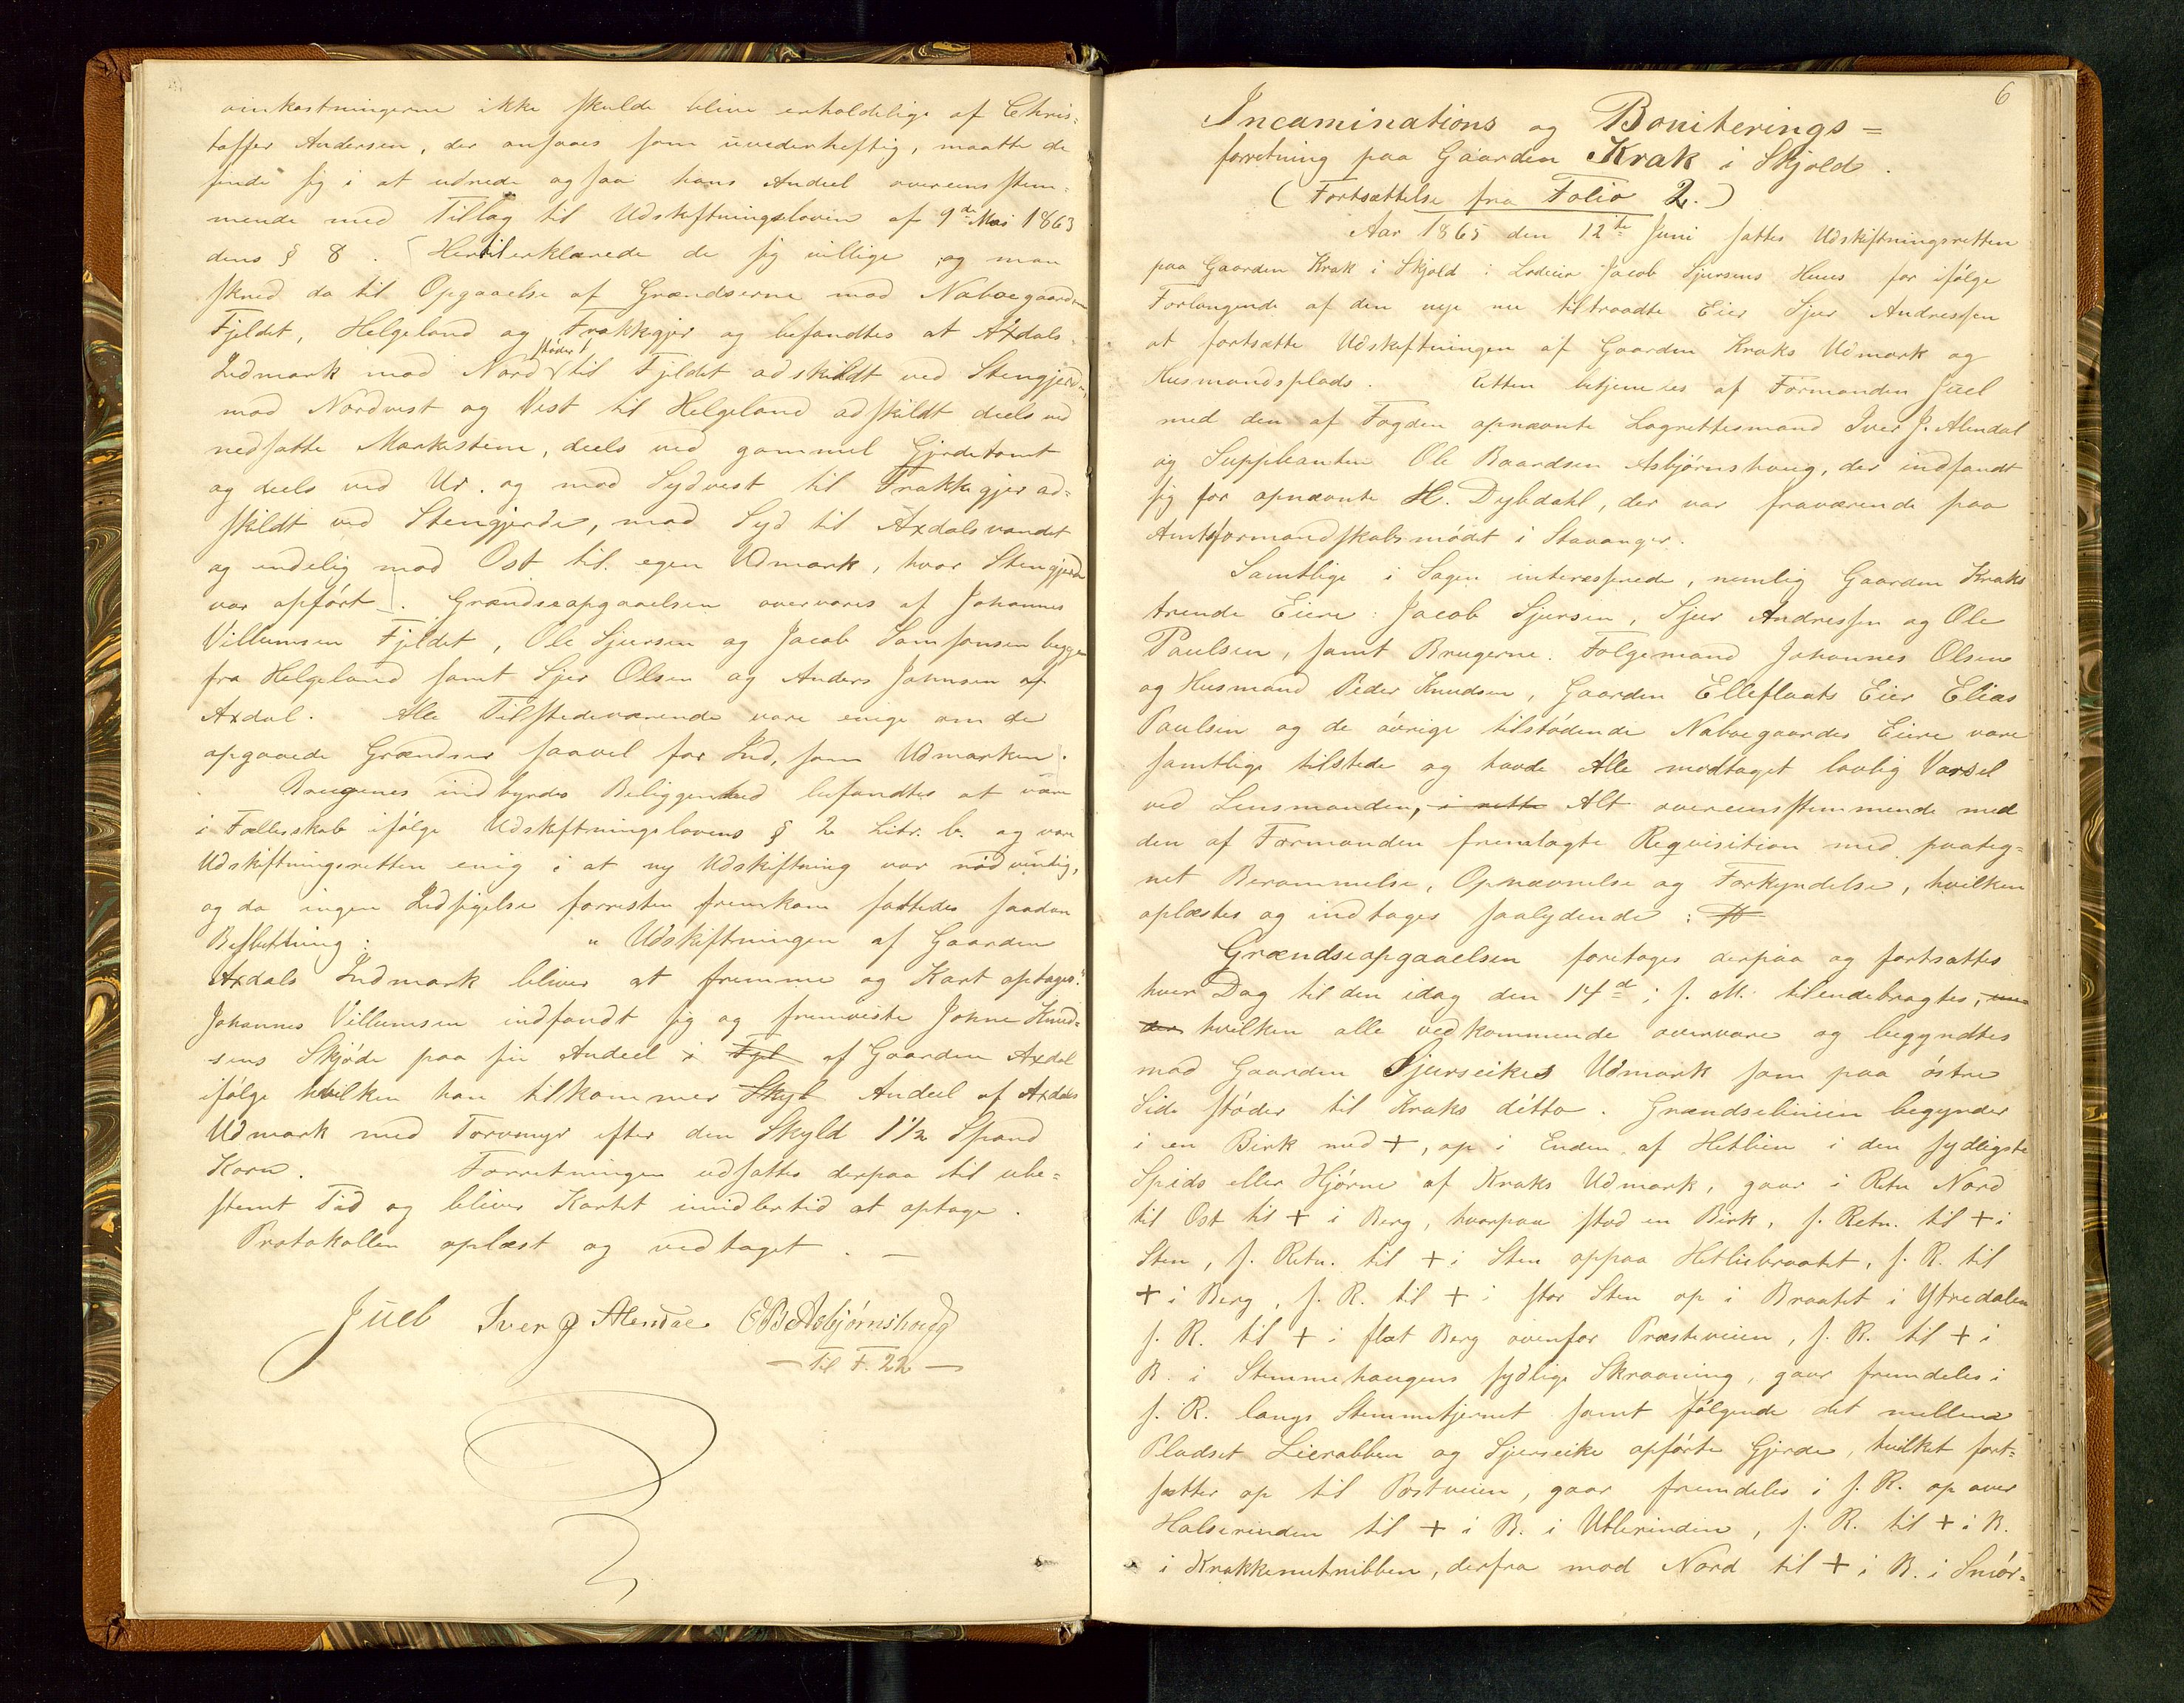 omkostningerne ikke skulde blive erholdelige af Chris=
taffer Andersen, der ansaaes som uvederheftig, maatte de
finde sig i at udrede ogsaa hans Andeel overeensstem=
mende med Tillæg til Udskiftningsloven af 9de Mai 1863
dens § 8. Hertil erklærede de sig villige og man
skred da til Opgaaelse af Grændserne mod Naboegaardene
Fjeldet, Helgeland og Frakkgjer og befandtes at Axdals
støder
Indmark mod Nord til Fjeldet adskildt ved Stengjerde,
mod Nordvest og Vest til Helgeland adskildt deels ved
nedsatte Markestene, deels ved gammel Gjerdetomt
og deels ved Ur. og mod Sydvest til Frakkegjer ad=
skildt ved Stengjerde, mod Syd til Axdalsvandet
og endelig mod Ost til egen Udmark, hvor Stengjerde
var opført. Grændseopgaaelsen overvares af Johannes
Villumsen Fjeldet, Ole Sjursen og Jacob Samsonsen begge
fra Helgeland samt Sjur Olsen og Anders Johnsen af
Axdal. Alle Tilstedeværende vare enige om de
opgaaede Grændser saavel for Ind, som Udmarken.
Brugenes indbyrdes Beliggenhed befandtes at være
i Fælleskab ifølge Udskiftningslovens § 2 Litr. b. og var
Udskiftningsretten enig i at ny Udskiftning var nødvendig,
og da ingen Indsigelse forresten fremkom fattedes saadan
Beslutning: "Udskiftningen af Gaarden
Axdals Indmark bliver at fremme og Kart optages."
Johannes Villumsen indfandt sig og fremviste Johne Knud=
sens Skjøde paa sin Andeel i Fjel af Gaarden Axdal
ifølge hvilken han tilkommer Skyl Andeel af Axdals
Udmark med Torvmyr efter den Skyld 1½ Spand
Korn. Forretningen udsattes derpaa til ube=
stemt Tid og bliver Kartet imidlertid at optage.
Protokollen oplæst og vedtaget. —
Juel Iver J Alendal OBAsbjørnshoug
— Til F. 22 —
6
Incaminations og Boniterings=
forretning paa Gaarden Krak i Skjold.
(Fortsættelse fra Folio 2.)
Aar 1865 den 12te Juni sattes Udskiftningsretten
paa Gaarden Krak i Skjold i Lodeier Jacob Sjursens Huus for ifølge
Forlangende af den nye nu tiltraadte Eier Sjur Andressen
at fortsætte Udskiftningen af Gaarden Kraks Udmark og
Husmandsplads. Retten betjenes af Formanden Juel
med den af Fogden opnævnte Lagrettesmand Iver J. Alendal
og Suppleanten Ole Baardsen Asbjørnshoug, der indfandt
sig for opnævnte H. Dybdahl, der var fraværende paa
Amtsformandskabsmødet i Stavanger.
Samtlige i Sagen interesserede, nemlig Gaarden Kraks
trende Eiere: Jacob Sjursen, Sjur Andressen og Ole
Paulsen, samt Brugerne. Følgemand Johannes Olsen
og Husmand Peder Knudsen, Gaarden Elleflaats Eier Elias
Paulsen og de øvrige tilstødende Naboegaardes Eiere vare
samtlige tilstede og havde Alle modtaget lovlig Varsel
ved Lensmanden, i rette Alt overeensstemmende med
den af Formanden fremlagte Requisition med paateg=
net Berammelse, Opnævnelse og Forkyndelse, hvilken
oplæstes og indtages saalydende: #
Grændseopgaaelsen foretoges derpaa og fortsattes
hver Dag til den idag den 14d i s. M. tilendebragtes, un=
der hvilken alle vedkommende overvare og begyndtes
mod Gaarden Sjurseikes Udmark som paa østre
Side støder til Kraks ditto. Grændselinien begynder
i en Birk med +, op i Enden af Hetlien i den sydligste
Spids eller Hjørne af Kraks Udmark, gaar i Retn Nord
til Ost til + i Berg, hvorpaa stod en Birk, s. Retn. til + i
Sten, s. Retn. til + i Sten oppaa Hetliebraatet, s. R. til
+ i Berg, s. R. til + i stor Sten op i Braatet i Ytredalen
s. R. til + i flat Berg ovenfor Præsteveien, s. R. til + i
B. i Stemmehaugens sydlige Skraaning, gaar fremdeles i
s. R. langs Stemmetjernet samt følgende det mellem
Pladset Lierabben og Sjurseike opførte Gjerde, hvilket fort=
sætter op til Postveien, gaar fremdeles i s. R. op over
Halserinden til + i B. i Utlerinden, s. R. til + i B.
i Krakkenutnibben, derfra mod Nord til + i B. i Smør=